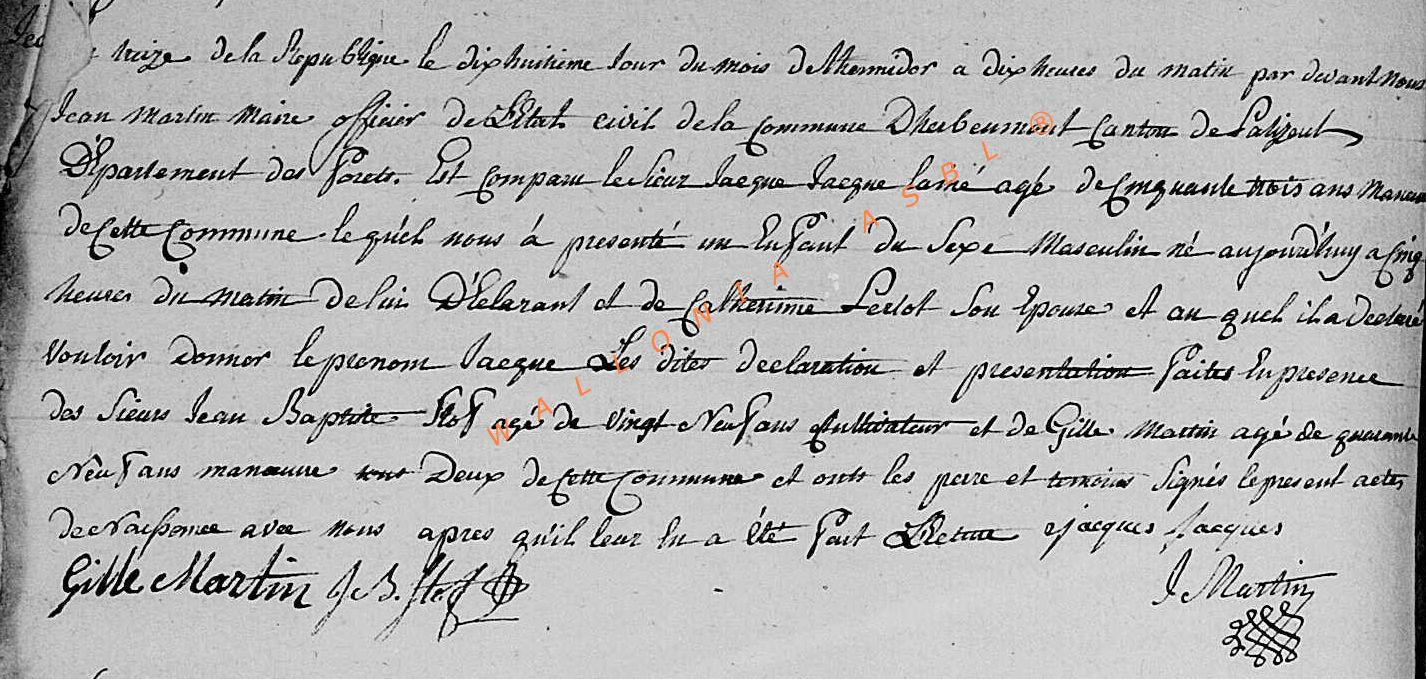 treize de la Republique le dixhuitieme Jour du mois de thermidor a dix heures du matin par devant nous
Jean Martin Maire officier de L'Etat civil de la Commune Dherbeumont Canton de Palizeul
Département des Forets. Est Comparu le Sieur Jacque Jacque lainé agé de Cinquante trois ans
de Cette Commune lequel nous à presenté un Enfant du Sexe Masculin né aujourd'huy a Cinq
heures du matin de lui Déclarant et de Catherinne Perlot Son Epouse et au quel il a declaré
Vouloir donner le prenom Jacque Les dites declaration et presentation Faites En presence
des Sieurs Jean Baptiste agé de vingt Neuf ans Cultivateur et de Gille Martin agé de quarante
Neuf ans manœuvre tous Deux de Cette Commune et onts les perre et temoins Signés le present acte
de Naissance avec nous apres qu'il leur en a été Fait Jacques Jacques
Gille Martin J B. J Martin
WALLONIA ASBL ®